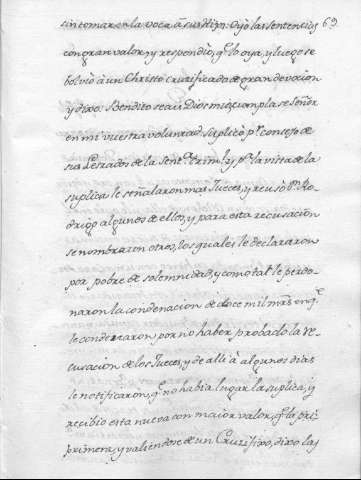 sin tomar en la voca á sus Hijos: Oyó las sentencias 69.
con gran valor, y respondio, q.e lo oya, y luego se
bolvió á un Christo crucificado de gran devocion
y dixo: Bendito seais Dios mio, cumplase Señor
en mi vuestra voluntad, suplicó p.r consejo de
sus Letrados de la Sent.a y p.a la vista de la
suplica le señalaron mas Jueces, y recusó D.n Ro-
drigo algunos de ellos, y para esta recusacion
se nombraron otros, los quales le declararon
por pobre de solemnidad, y como tal le perdo-
naron la condenacion de doce mil mrs. en q.e
le condenaron, por no haber probado la re-
cusacion de los Jueces, y de alli á algunos dias
le notificaron, q.e no habia lugar la suplica, y
recibio esta nueva con maior valor, q.e la pri-
primera, y valiendose de un Crucifixo, dixo las